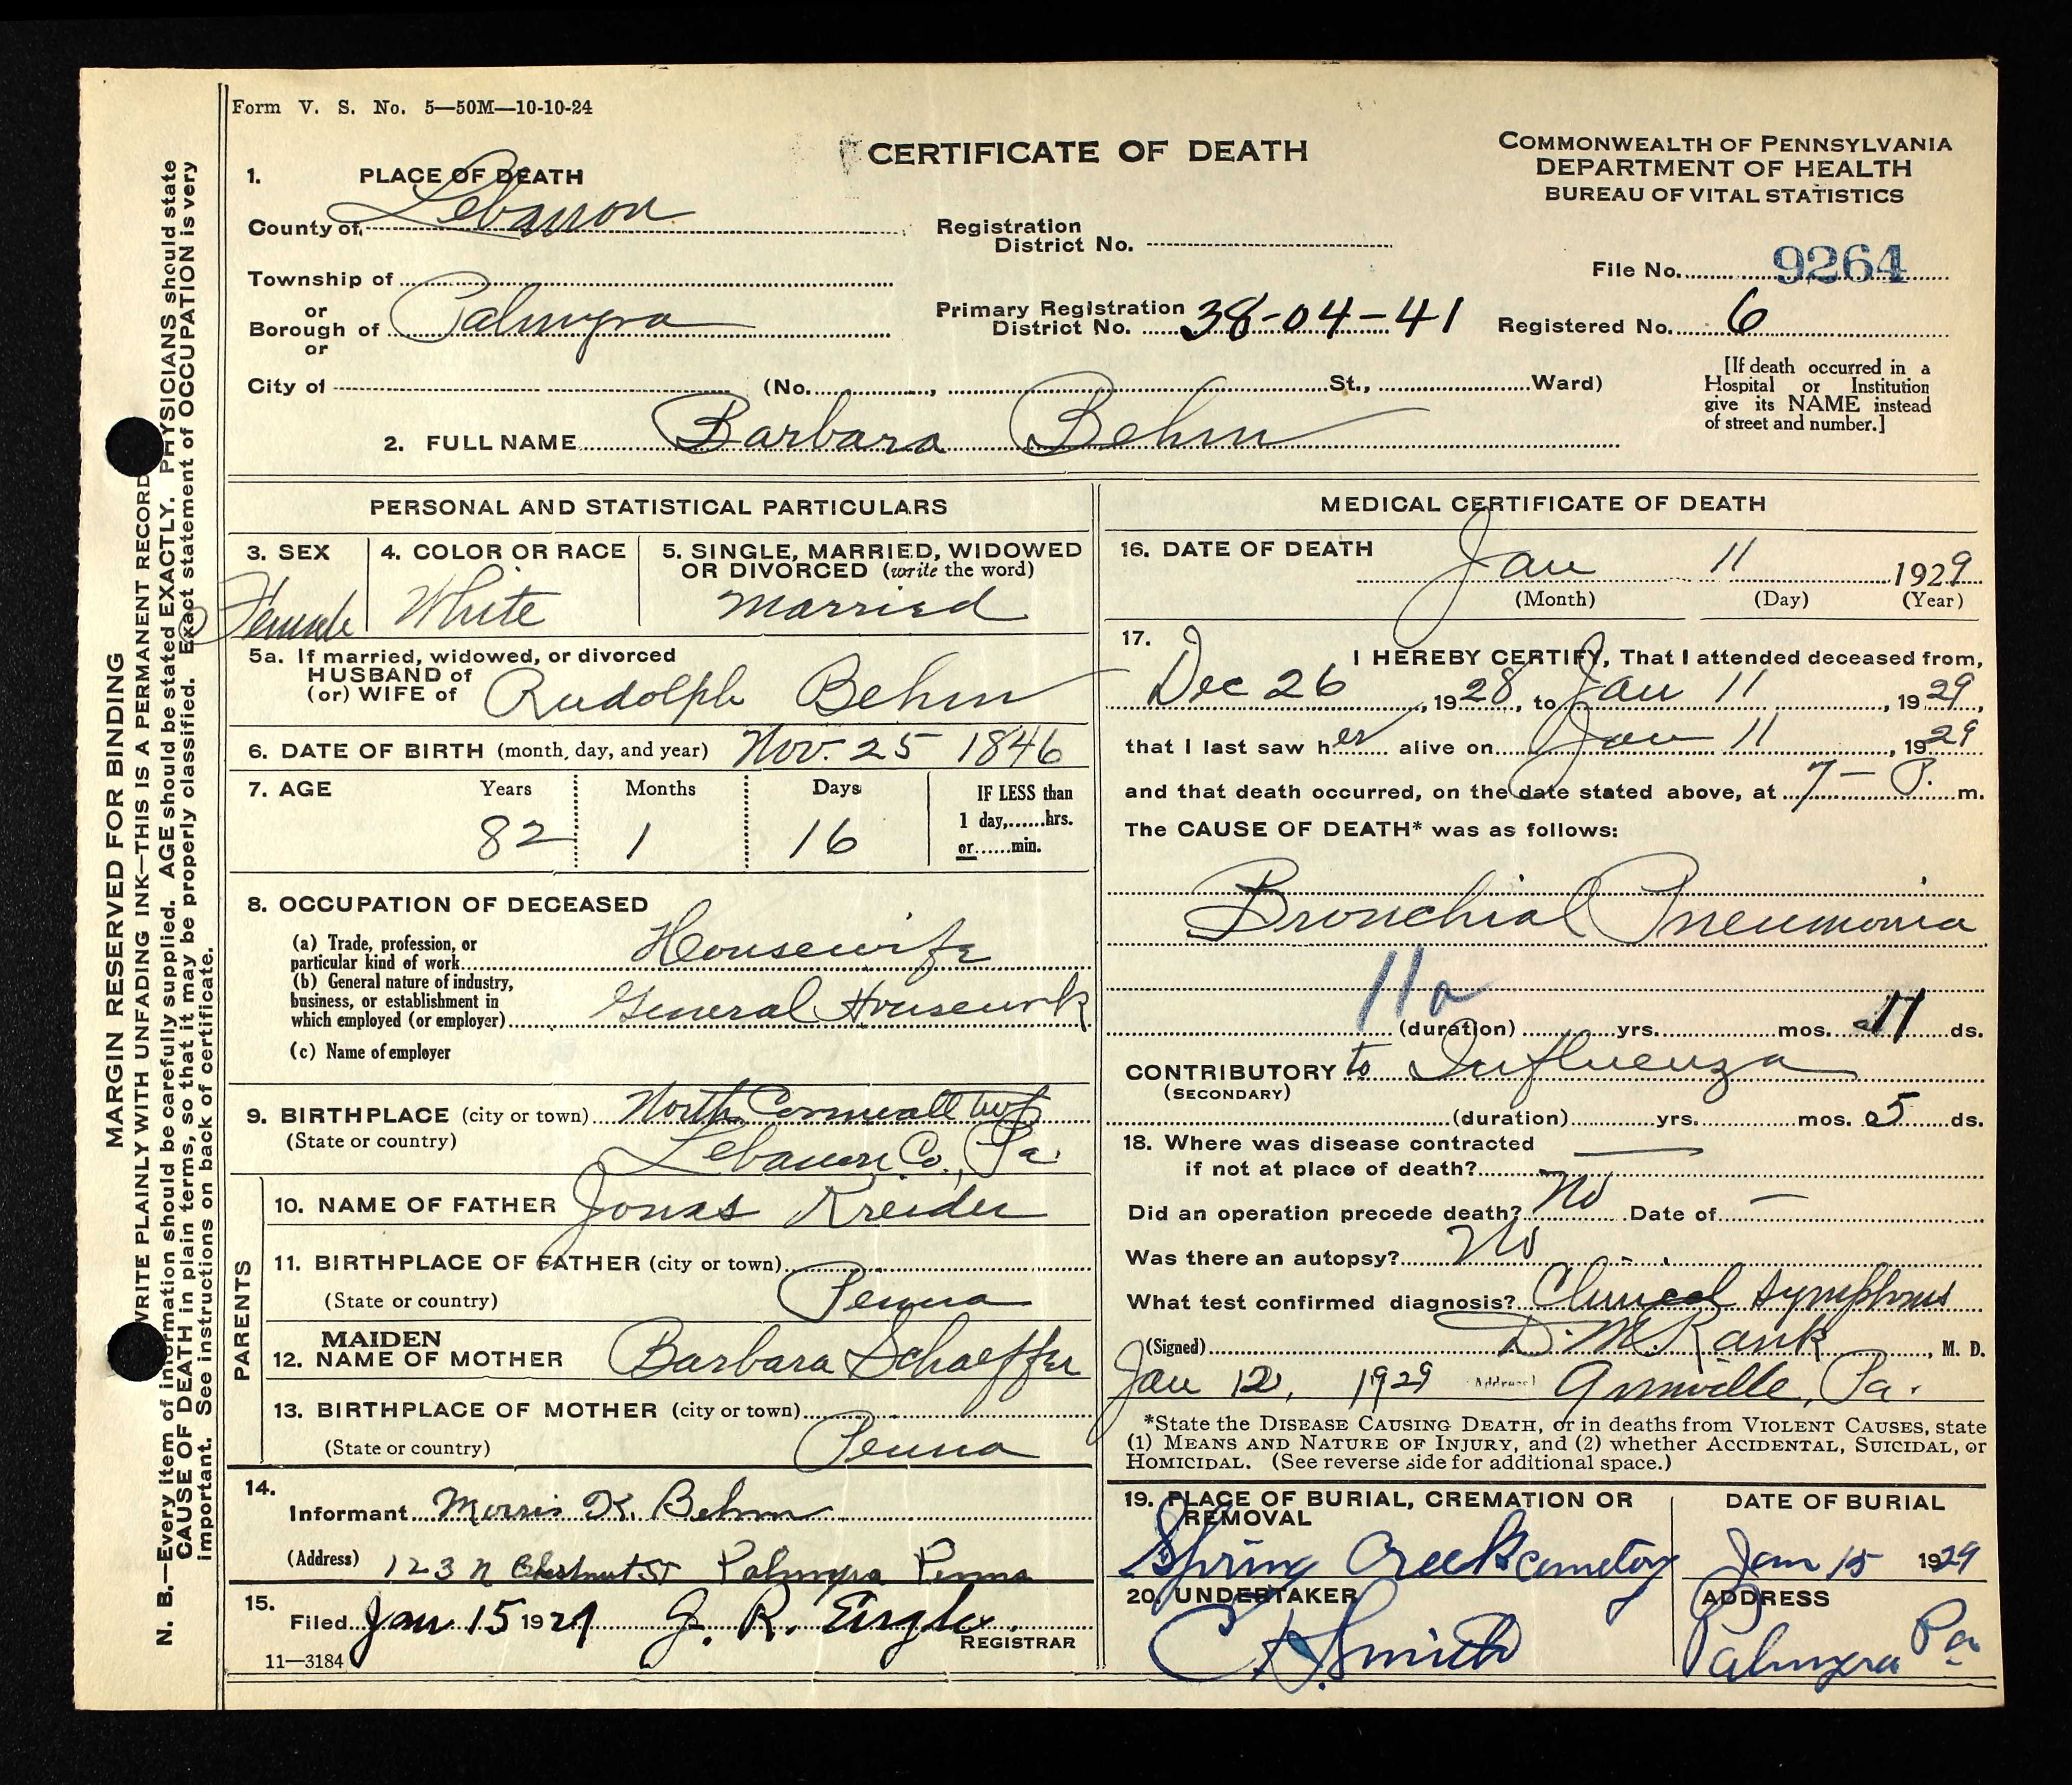 Form V. S. No. 5—50M—10-10-24
CERTIFICATE OF DEATH
COMMONWEALTH OF PENNSYLVANIA
DEPARTMENT OF HEALTH
BUREAU OF VITAL STATISTICS
1. PLACE OF DEATH
County of Lebanon
Registration District No.
File No. 9264
Township of
or
Borough of Palmyra
or
Primary Registration District No. 38-04-41
Registered No. 6
City of (No. , St., Ward)
[If death occurred in a
Hospital or Institution
give its NAME instead
of street and number.]
2. FULL NAME Barbara Behm
PERSONAL AND STATISTICAL PARTICULARS
3. SEX
Female
4. COLOR OR RACE
White
5. SINGLE, MARRIED, WIDOWED
OR DIVORCED (write the word)
Married
5a. If married, widowed, or divorced
HUSBAND of
(or) WIFE of Rudolph Behm
6. DATE OF BIRTH (month, day, and year) Nov. 25 1846
7. AGE Years Months Days
82 1 16
IF LESS than
1 day,......hrs.
or......min.
8. OCCUPATION OF DECEASED
(a) Trade, profession, or
particular kind of work Housewife
(b) General nature of industry,
business, or establishment in
which employed (or employer) General Housework
(c) Name of employer
9. BIRTHPLACE (city or town) North Cornwall twp
(State or country) Lebanon Co., Pa.
PARENTS
10. NAME OF FATHER Jonas Kreider
11. BIRTHPLACE OF FATHER (city or town)
(State or country) Penna
12. MAIDEN NAME OF MOTHER Barbara Schaeffer
13. BIRTHPLACE OF MOTHER (city or town)
(State or country) Penna
14.
Informant Morris K. Behm
(Address) 123 N Chestnut St Palmyra Penna
15.
Filed Jan 15 1929 J. R.
REGISTRAR
11—3184
MEDICAL CERTIFICATE OF DEATH
16. DATE OF DEATH
Jan 11 1929
(Month) (Day) (Year)
17. I HEREBY CERTIFY, That I attended deceased from,
Dec 26, 1928, to Jan 11, 1929,
that I last saw her alive on Jan 11, 1929
and that death occurred, on the date stated above, at 7— P. m.
The CAUSE OF DEATH* was as follows:
Bronchial Pneumonia
11a
(duration) yrs. mos. 11 ds.
CONTRIBUTORY to Influenza
(SECONDARY)
(duration) yrs. mos. 5 ds.
18. Where was disease contracted
if not at place of death? —
Did an operation precede death? No Date of —
Was there an autopsy? No
What test confirmed diagnosis? Clinical symptoms
(Signed) D. M. Rank, M. D.
Jan 12, 1929 (Address) Annville, Pa.
*State the DISEASE CAUSING DEATH, or in deaths from VIOLENT CAUSES, state
(1) MEANS AND NATURE OF INJURY, and (2) whether ACCIDENTAL, SUICIDAL, or
HOMICIDAL. (See reverse side for additional space.)
19. PLACE OF BURIAL, CREMATION OR
REMOVAL
Spring Creek cemetery
DATE OF BURIAL
Jan 15 1929
20. UNDERTAKER
C H Smith
ADDRESS
Palmyra Pa
MARGIN RESERVED FOR BINDING
WRITE PLAINLY WITH UNFADING INK—THIS IS A PERMANENT RECORD
N. B.—Every item of information should be carefully supplied. AGE should be stated EXACTLY. PHYSICIANS should state
CAUSE OF DEATH in plain terms, so that it may be properly classified. Exact statement of OCCUPATION is very
important. See instructions on back of certificate.